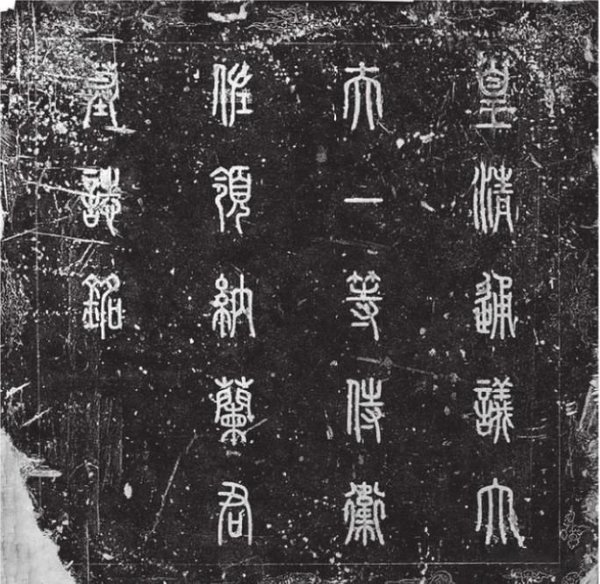 皇清通議大
夫一等侍衛
佐領納蘭君
墓誌銘